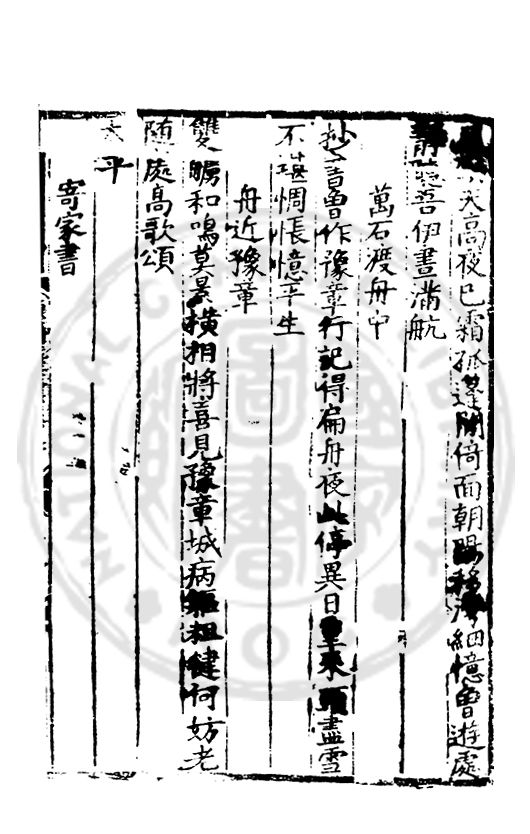 天高夜已霜孤篷閒倚面朝陽移舟細憶曾遊處
吾伊晝滿航
萬石渡舟中
抄書曾作豫章行記得扁舟夜此停異日重來頭盡雪
不堪惆悵憶平生
舟近豫章
雙鴈和鳴莫景橫相將喜見豫章城病軀粗健何妨老
随處高歌頌
太平
寄家書